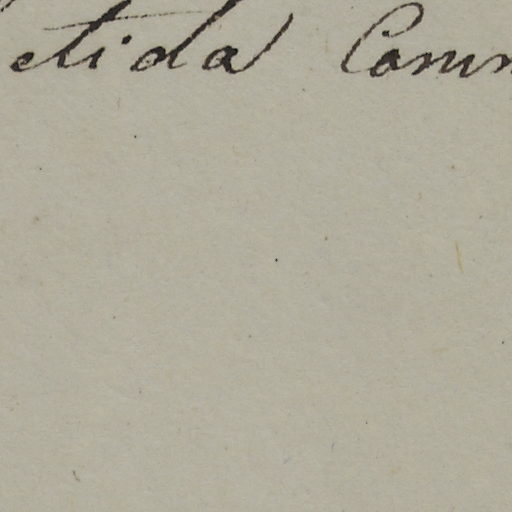 etida Comm